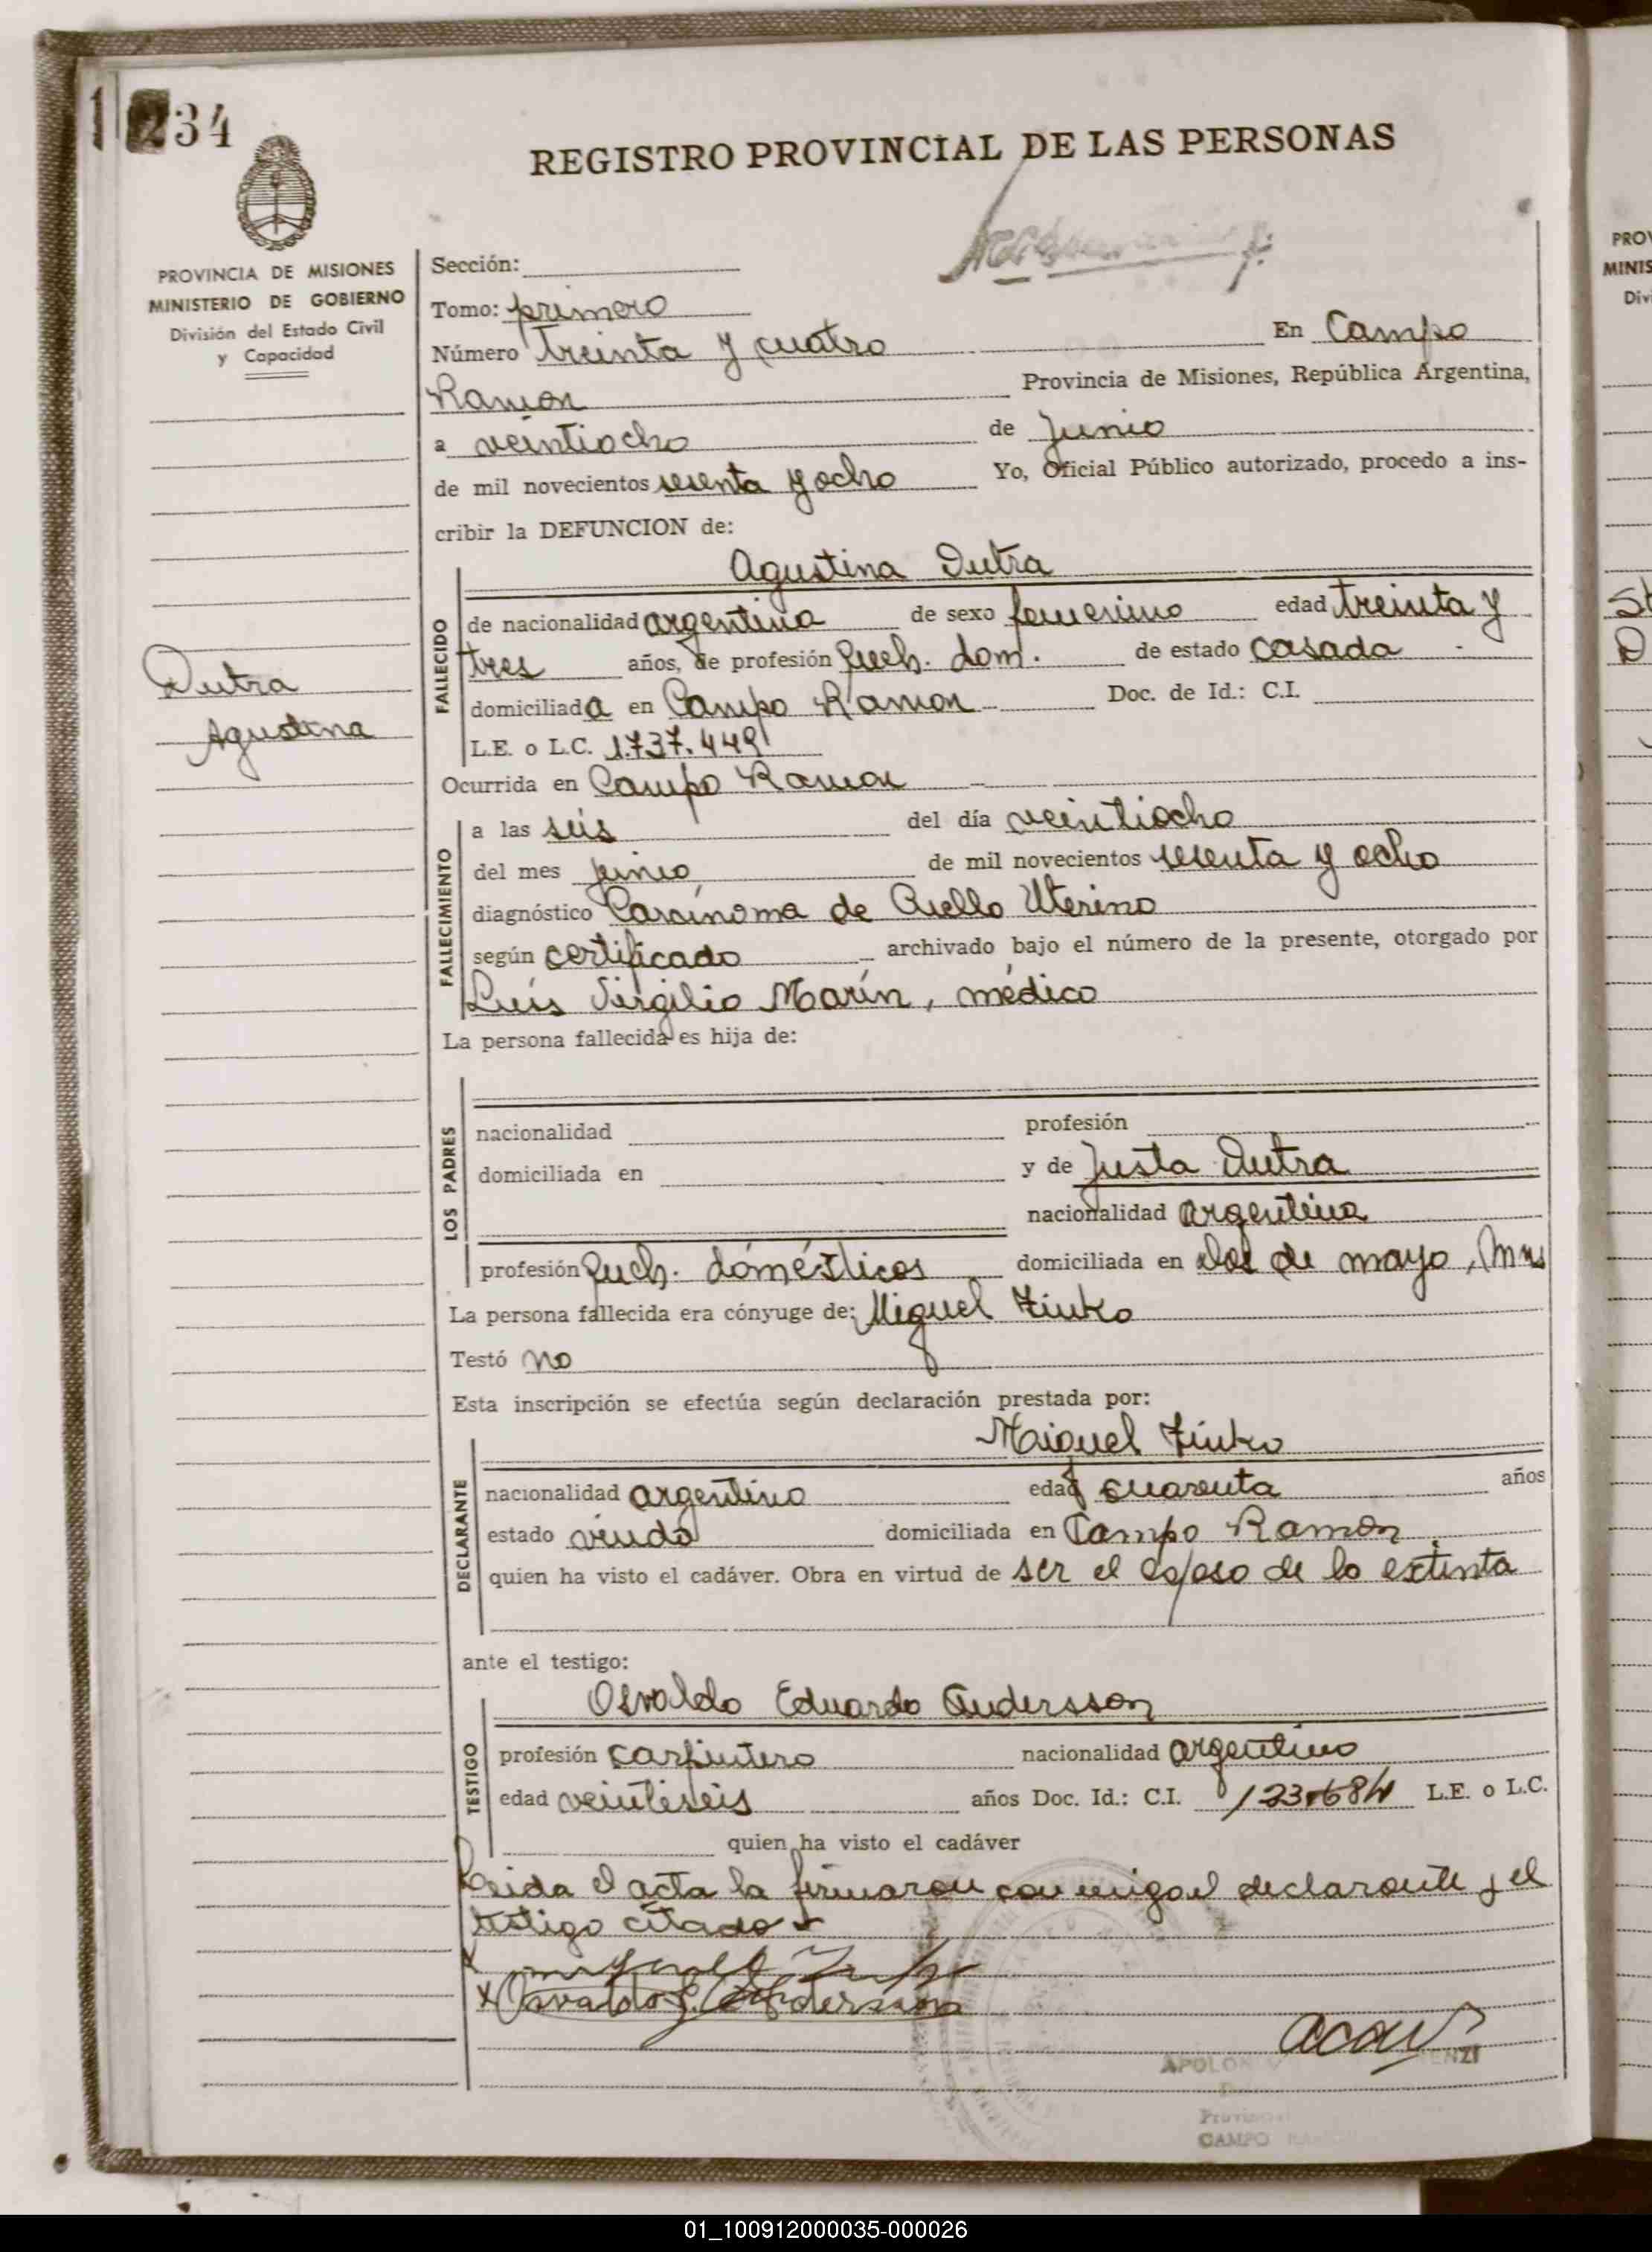 34
REGISTRO PROVINCIAL DE LAS PERSONAS
PROVINCIA DE MISIONES
MINISTERIO DE GOBIERNO
División del Estado Civil
y Capacidad
Sección:
Tomo: primero
Número Treinta y cuatro En Campo
Ramon Provincia de Misiones, República Argentina,
a veintiocho de Junio
de mil novecientos sesenta y ocho Yo, Oficial Público autorizado, procedo a ins-
cribir la DEFUNCION de:
Agustina Dutra
FALLECIDO
de nacionalidad argentina de sexo femenino edad treinta y
tres años, de profesión Queh. dom. de estado casada
domiciliada en Campo Ramon Doc. de Id.: C.I.
L.E. o L.C. 1.737.449
Dutra
Agustina
Ocurrida en Campo Ramon
FALLECIMIENTO
a las seis del día veintiocho
del mes junio de mil novecientos sesenta y ocho
diagnóstico Carcinoma de Cuello Uterino
según certificado archivado bajo el número de la presente, otorgado por
Luis Virgilio Marín, médico
La persona fallecida es hija de:
LOS PADRES
nacionalidad profesión
domiciliada en y de Justa Dutra
nacionalidad argentina
profesión Queh. domésticos domiciliada en dos de mayo, Mns
La persona fallecida era cónyuge de: Miguel
Testó no
Esta inscripción se efectúa según declaración prestada por:
Miguel
DECLARANTE
nacionalidad argentino edad cuarenta años
estado viudo domiciliada en Campo Ramon
quien ha visto el cadáver. Obra en virtud de ser el esposo de la extinta
ante el testigo:
Osvaldo Eduardo Andersson
TESTIGO
profesión carpintero nacionalidad argentino
edad veintiseis años Doc. Id.: C.I. 123.684 L.E. o L.C.
quien ha visto el cadáver
Leida el acta la firmaron conmigo el declarante y el
testigo citado
Osvaldo E. Andersson
APOLON ENZI
CAMPO
PROV
MINIS
Div
01_100912000035-000026